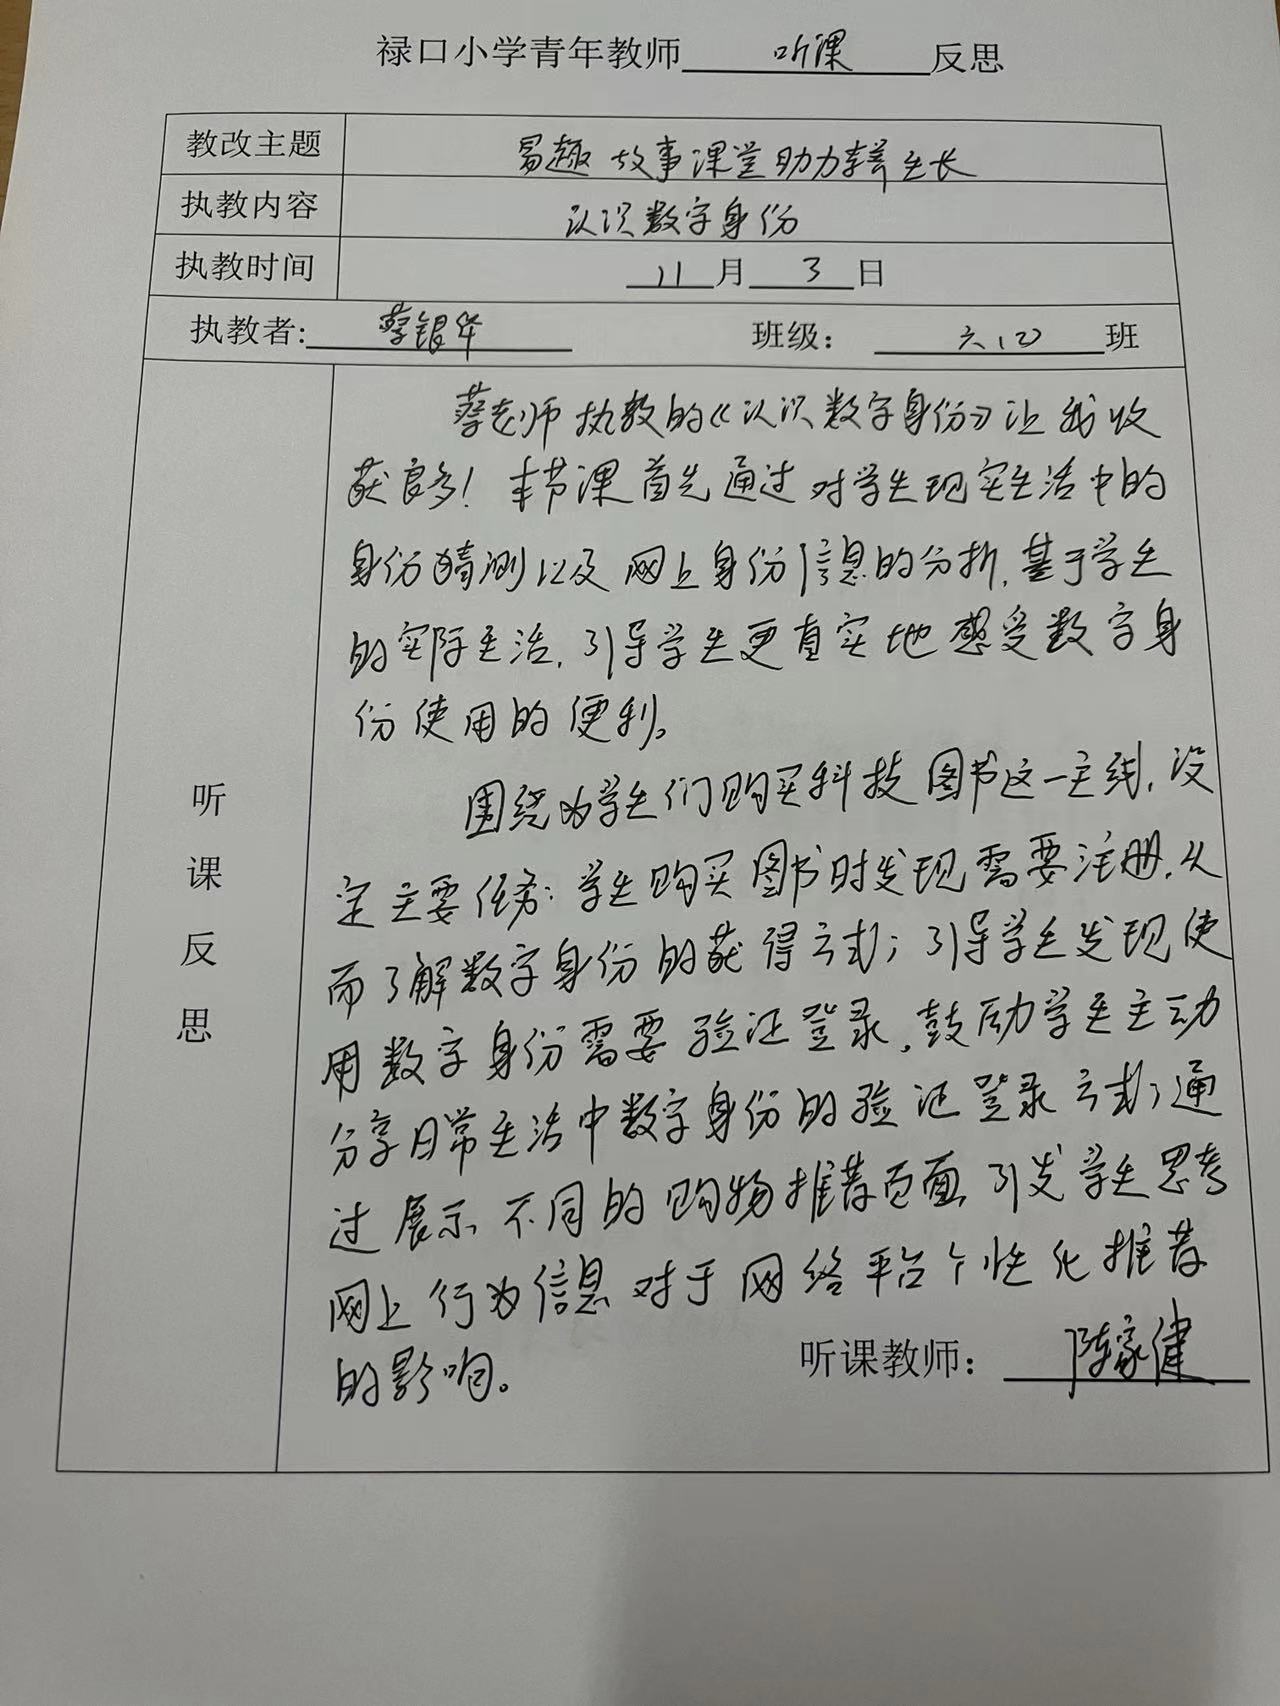 禄口小学青年教师 听课 反思
教改主题 易趣故事课堂助力 生长
执教内容 认识数字身份
执教时间 11月3日
执教者: 蔡银华 班级: 六 班
听课反思
蔡老师执教的《认识数字身份》让我收
获良多！本节课首先通过对学生现实生活中的
身份猜测以及网上身份信息的分析,基于学生
的实际生活,引导学生更真实地感受数字身
份使用的便利。
围绕为学生们购买科技图书这一主线,设
定主要任务:学生购买图书时发现需要注册,从
而了解数字身份的获得方式；引导学生发现使
用数字身份需要验证登录,鼓励学生主动
分享日常生活中数字身份的验证登录方式；通
过展示不同的购物推荐页面,引发学生思考
网上行为信息对于网络平台个性化推荐
的影响。
听课教师: 陈家健